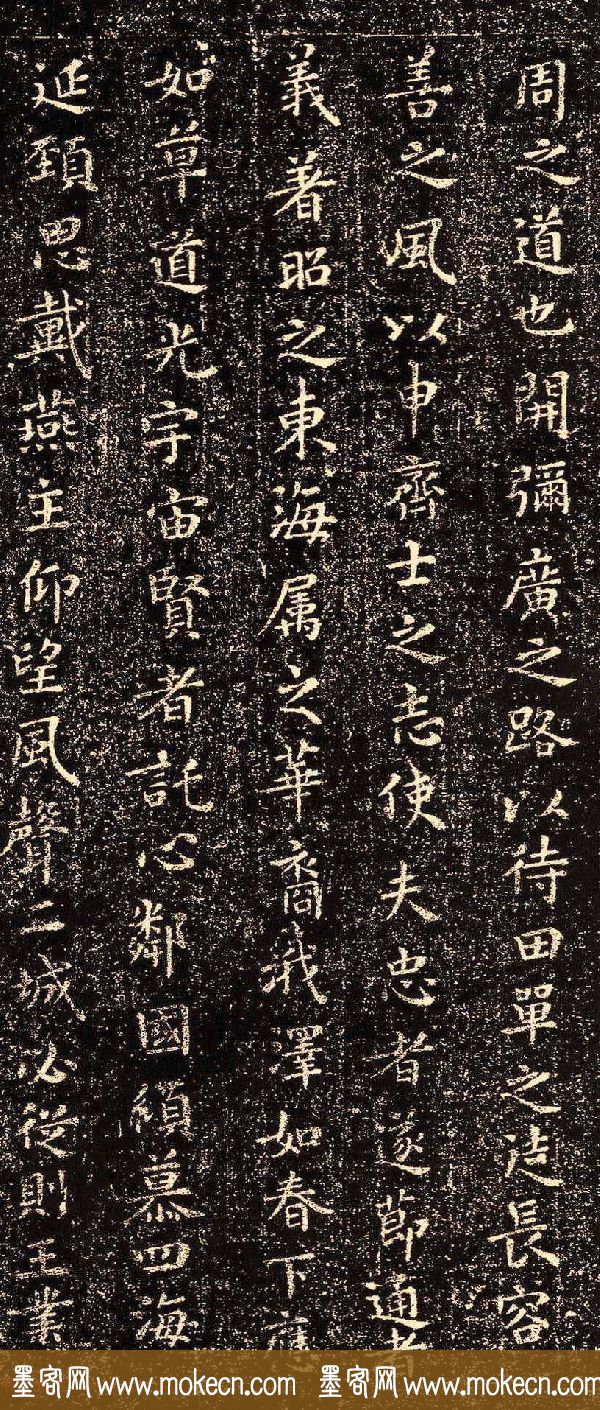 周之道也開彌廣之路以待田單之迲長容
善之風以申齊士之志使夫忠者遂莭通者
義著昭之東海属之華裔我澤如春下應
如草道光宇宙賢者託心鄰國傾慕四海
延頚思戴燕主仰望風聲二城必從則王業
墨客网www.mokecn.com 墨客网www.mokecn.com